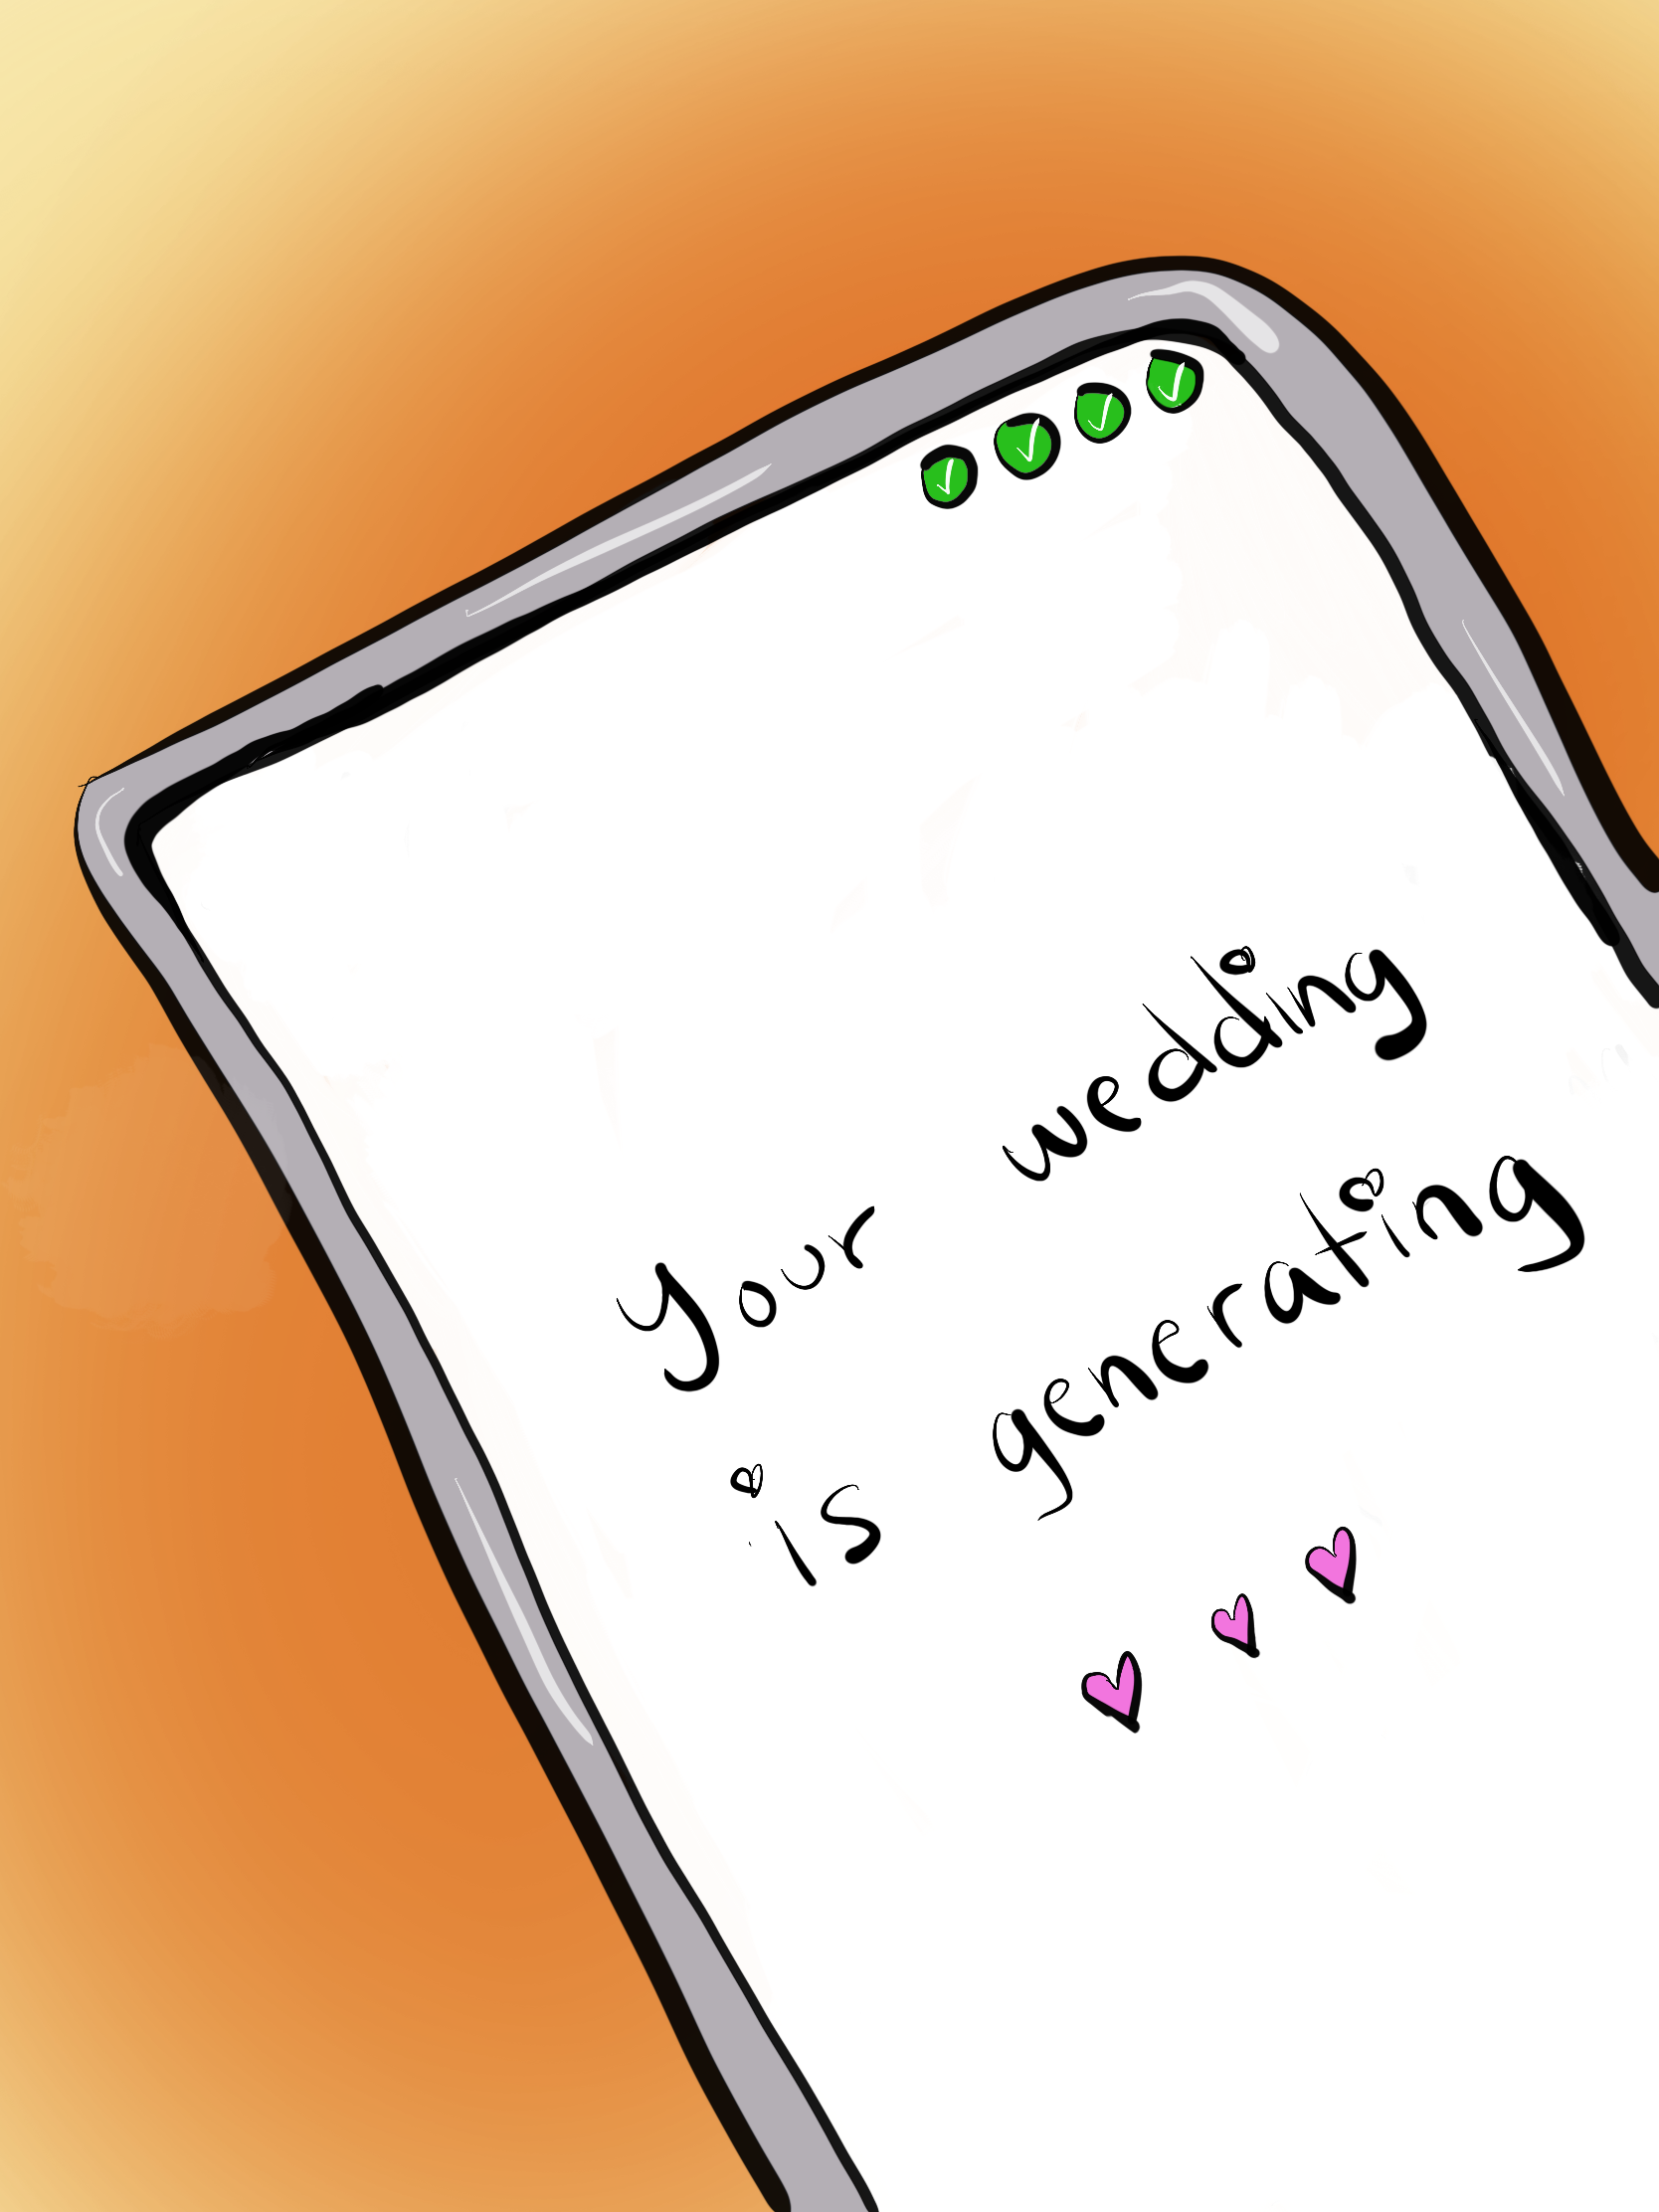 Your wedding
is generating